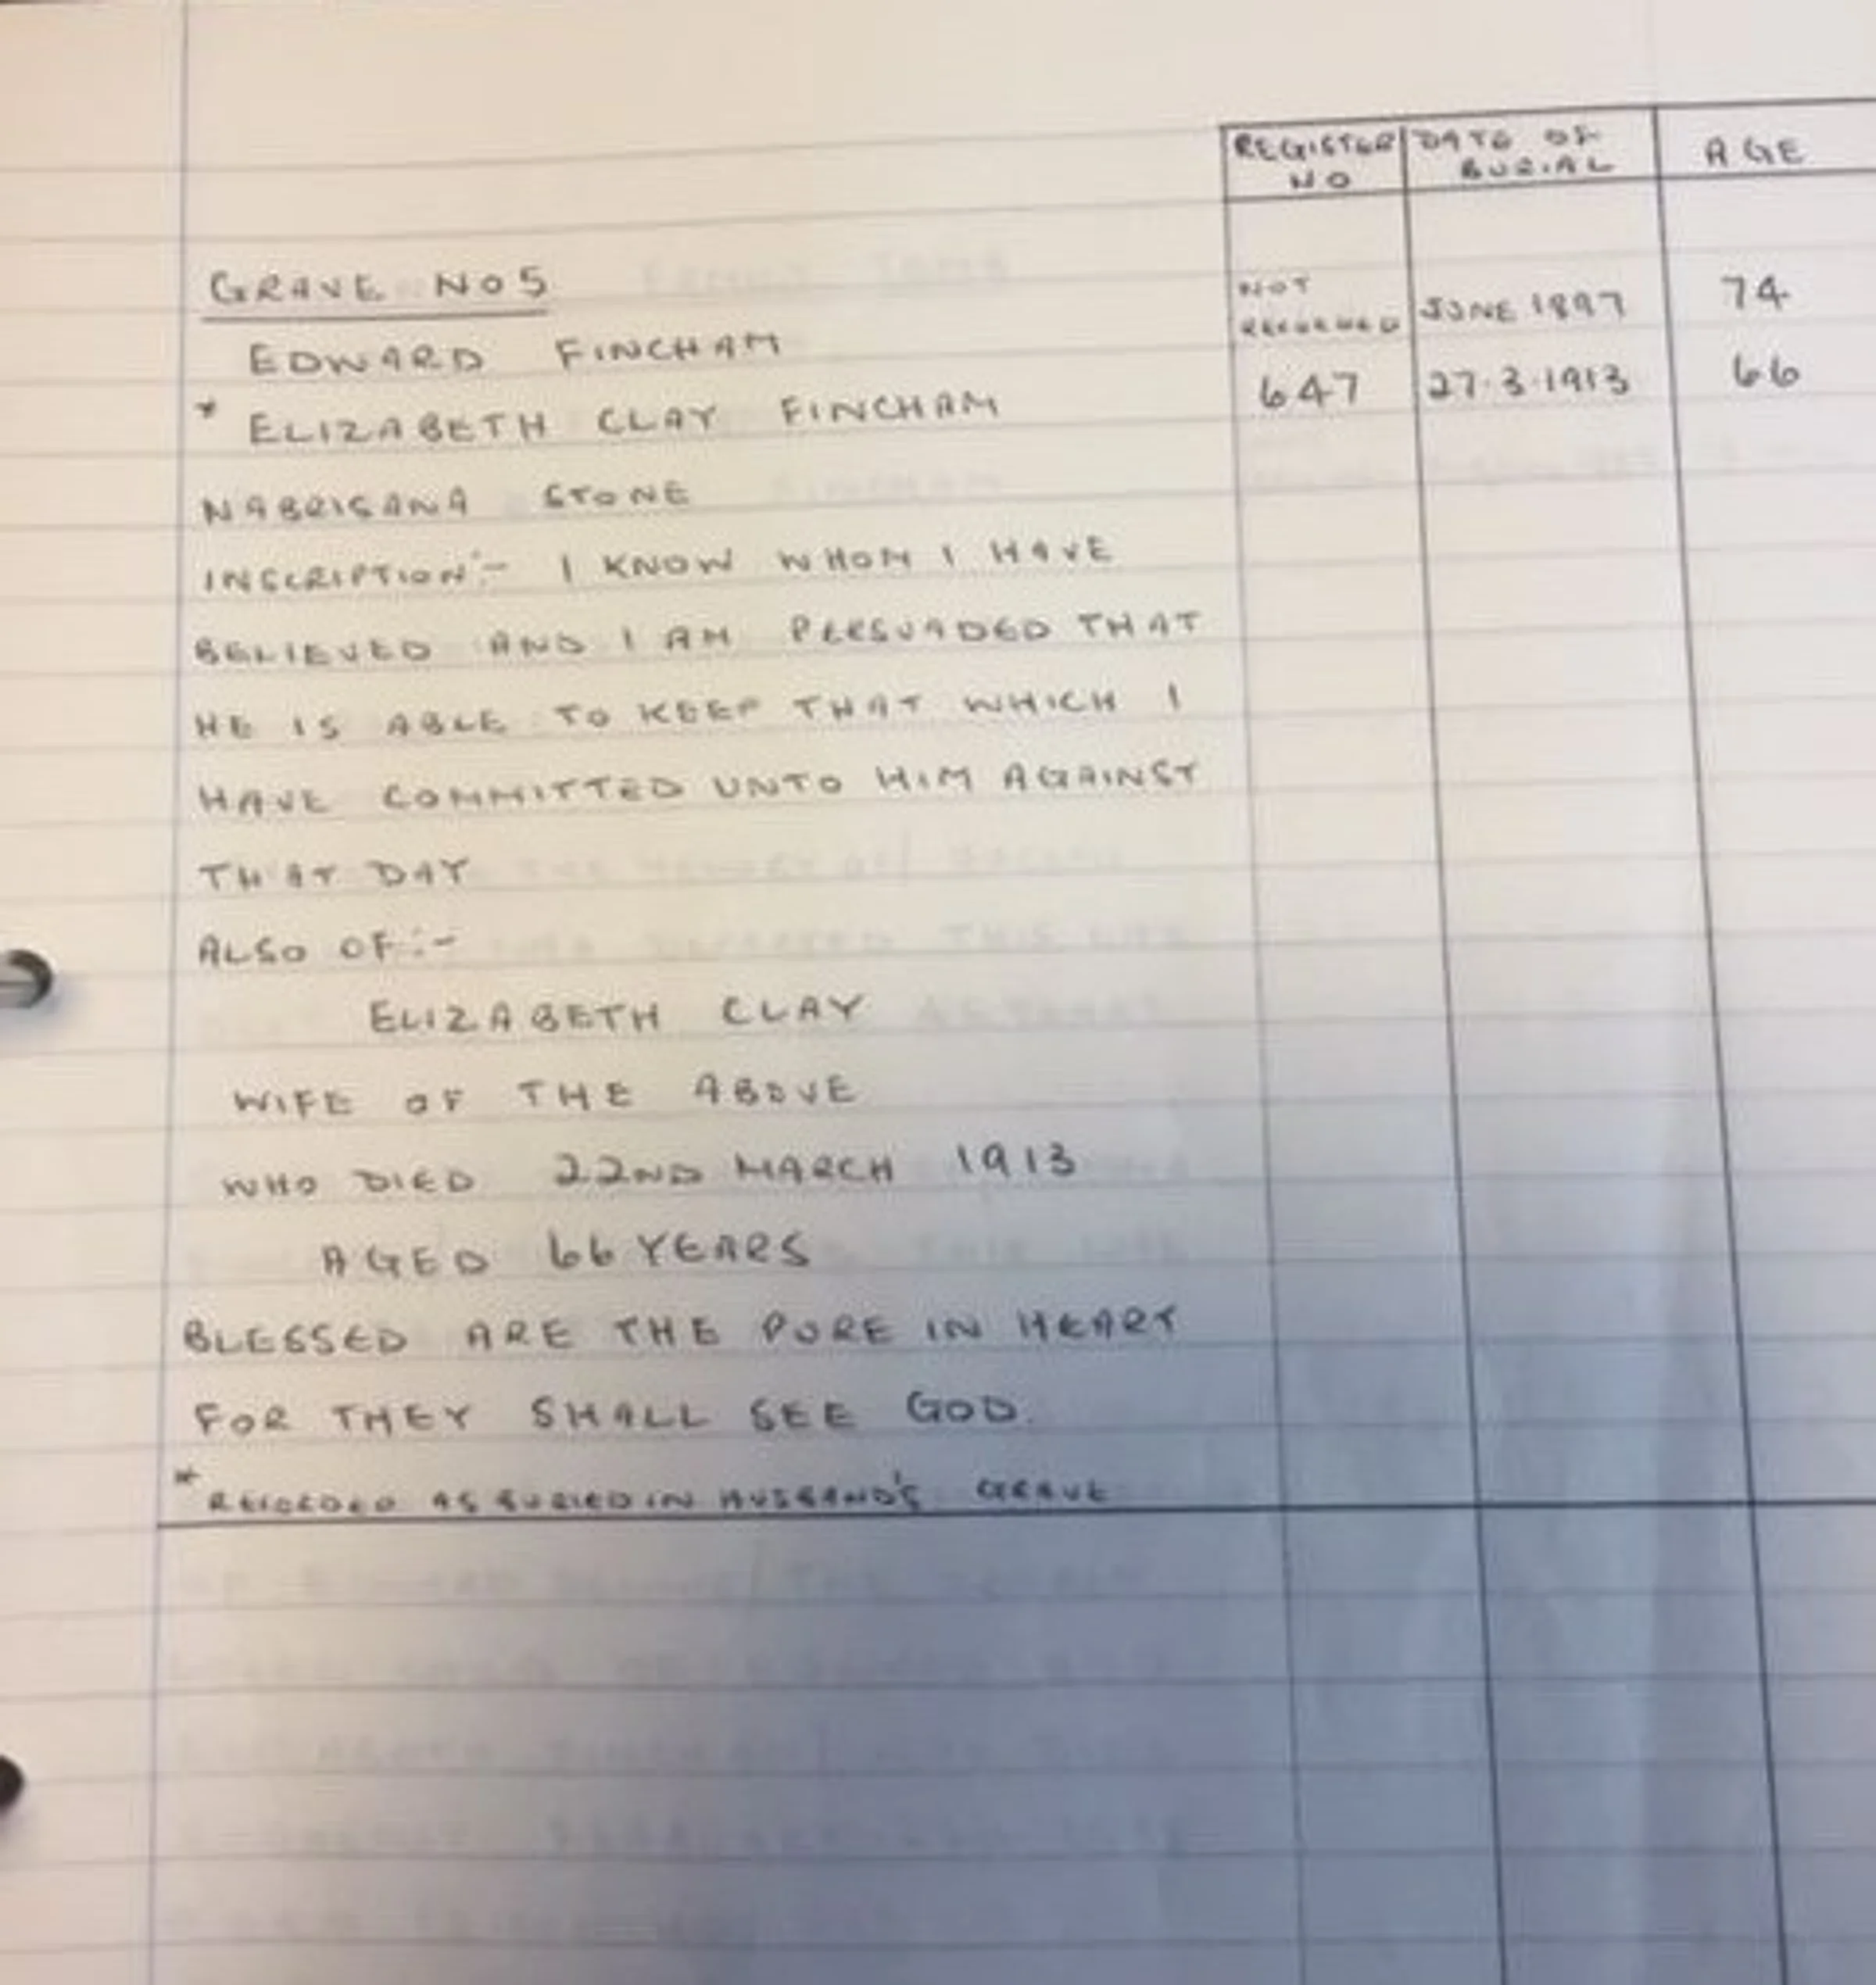 REGISTER NO
DATE OF BURIAL
AGE
GRAVE NO 5
EDWARD FINCHAM NOT RECORDED JUNE 1897 74
* ELIZABETH CLAY FINCHAM 647 27.3.1913 66
NABRISANA STONE
INSCRIPTION:- I KNOW WHOM I HAVE
BELIEVED AND I AM PERSUADED THAT
HE IS ABLE TO KEEP THAT WHICH I
HAVE COMMITTED UNTO HIM AGAINST
THAT DAY
ALSO OF:-
ELIZABETH CLAY
WIFE OF THE ABOVE
WHO DIED 22ND MARCH 1913
AGED 66 YEARS
BLESSED ARE THE PURE IN HEART
FOR THEY SHALL SEE GOD.
* RECORDED AS BURIED IN HUSBAND'S GRAVE